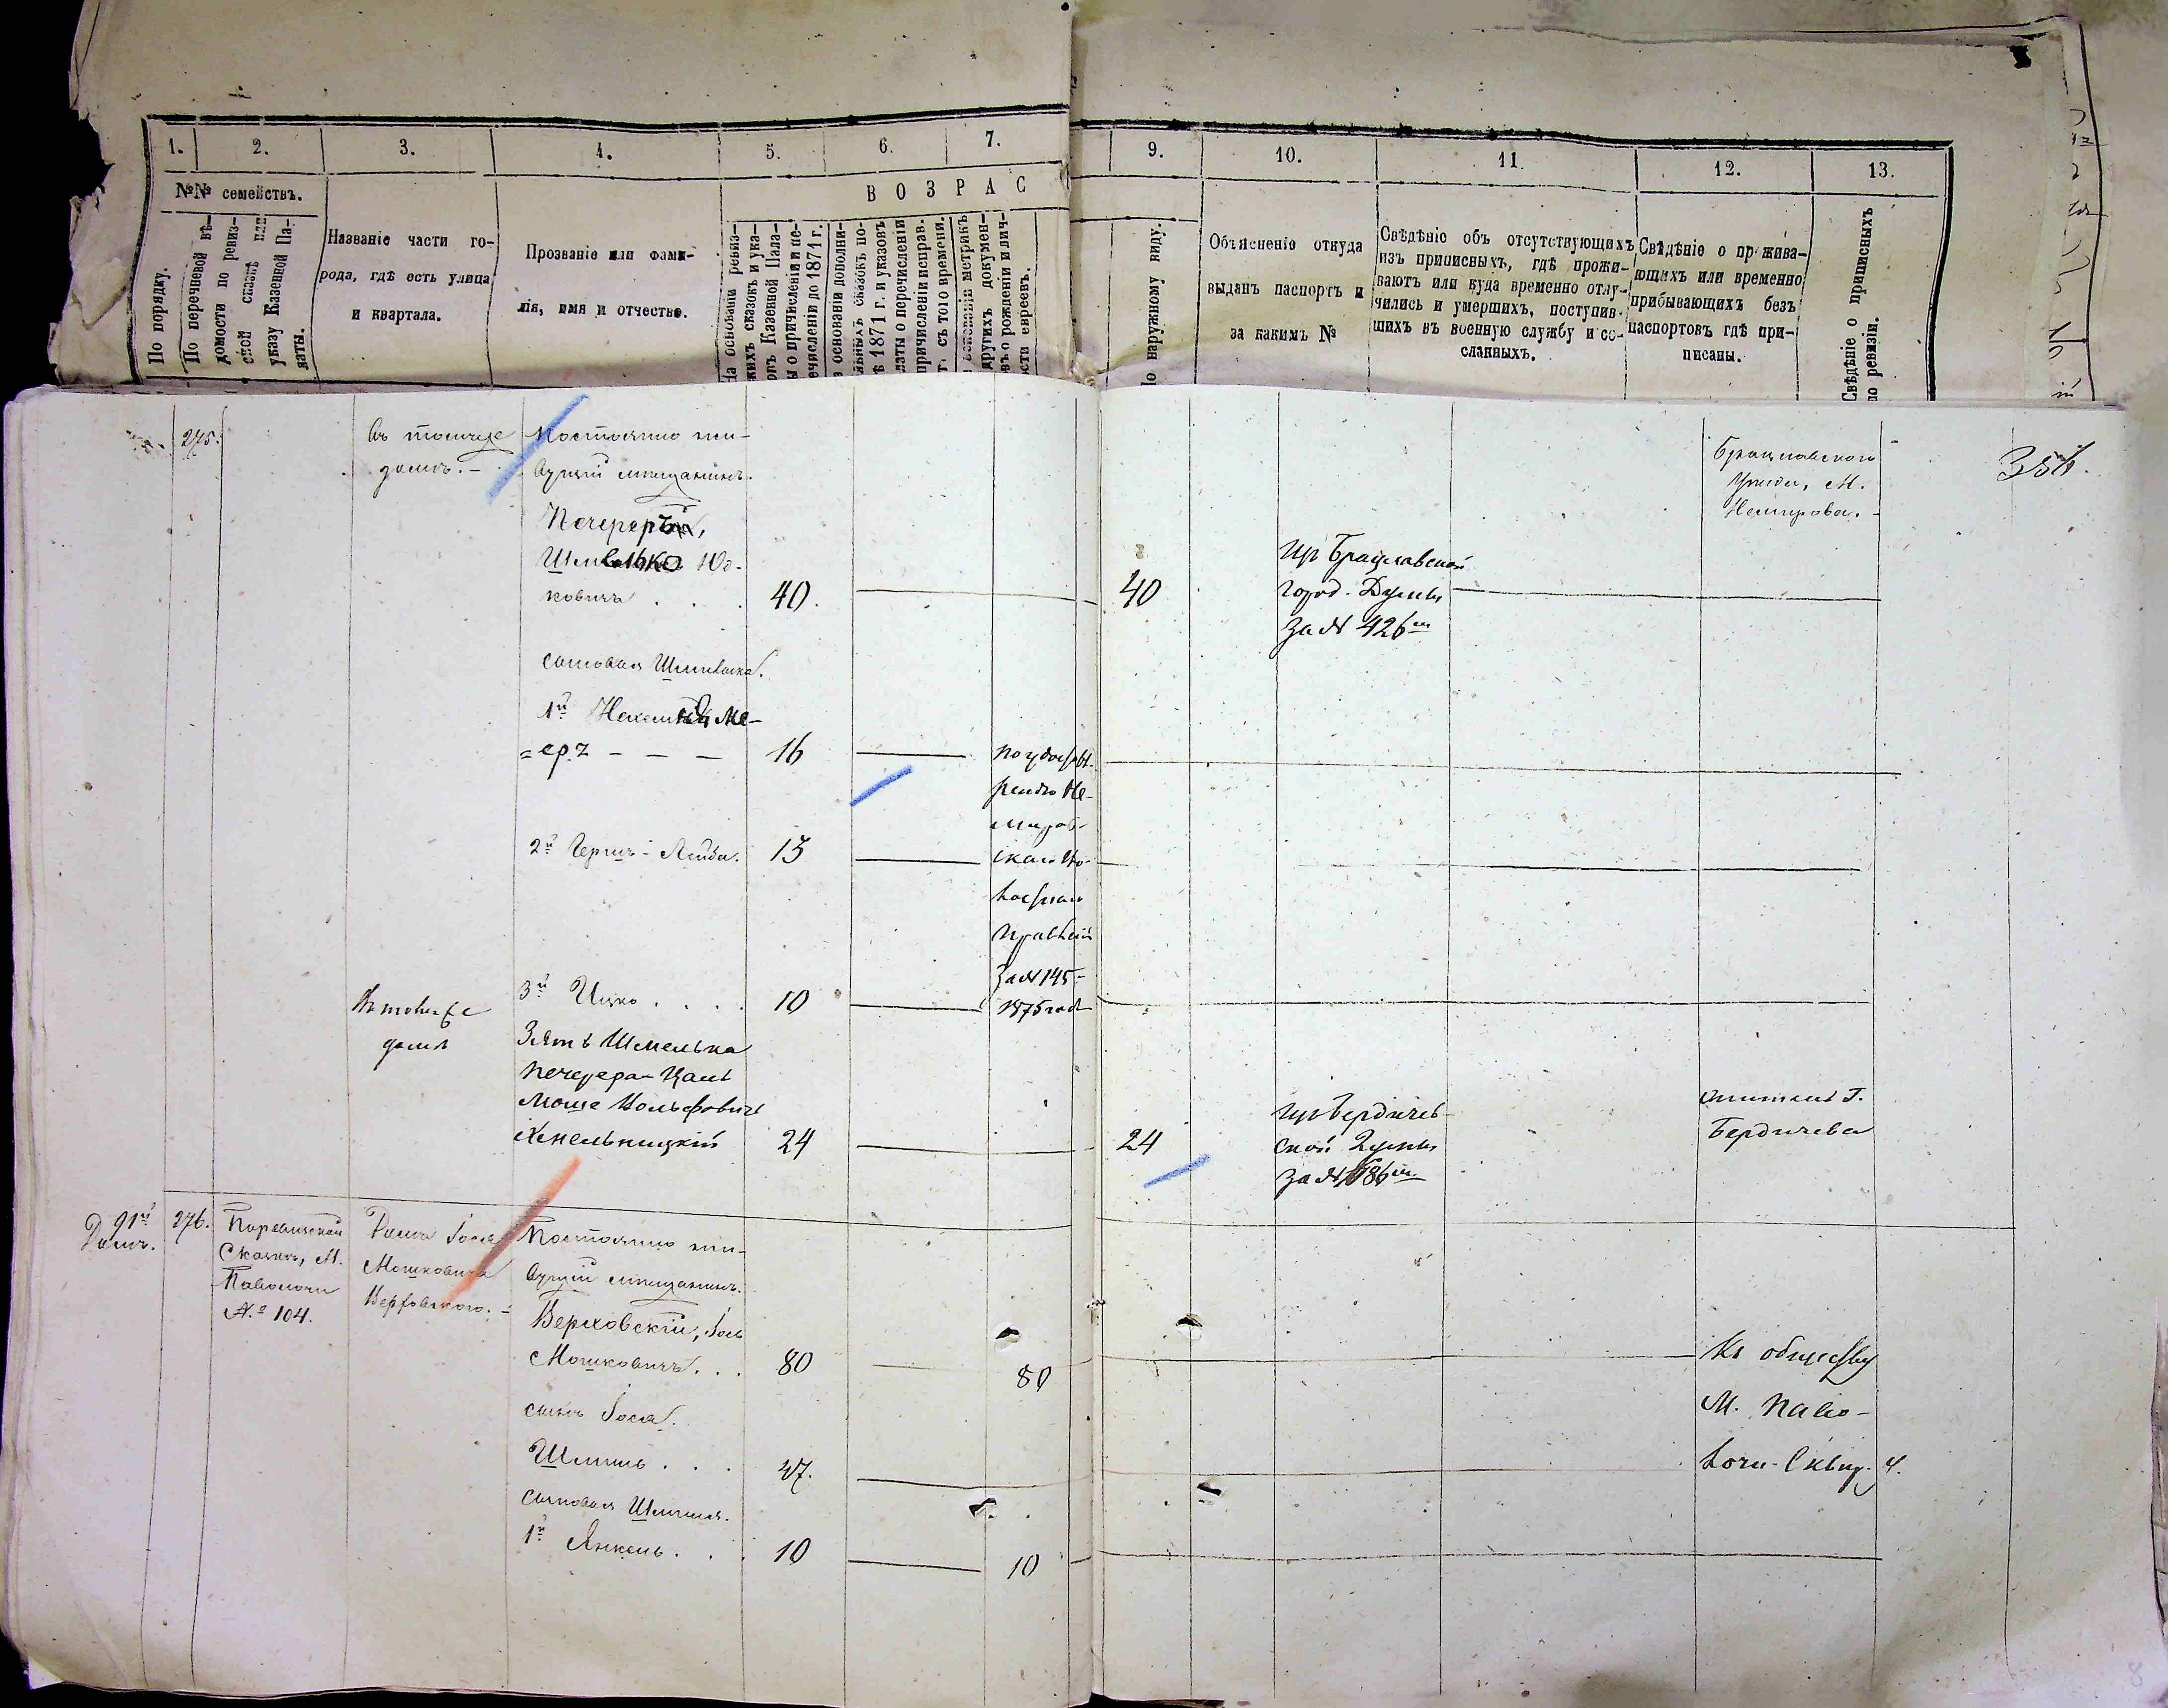 1.
2.
3.
4.
5.
6.
7.
9.
10.
11.
12.
13.
№№ семействъ.
По порядку.
По перечневой вѣ-
домости по ревиз-
ской сказкѣ или
указу Казенной Па-
латы.
Названіе части го-
рода, гдѣ есть улица
и квартала.
Прозваніе или фами-
лія, имя и отчество.
ВОЗРАС
На основаніи ревиз-
скихъ сказокъ и ука-
ы о причисленіи и пе-
ечисленіи до 1871 г.
основаніи дополни-
льныхъ сказокъ по-
ѣ 1871 г. и указовъ
латы о перечисленіи
причисленіи исправ.
г. съ того времени.
основаніи метрикъ
другихъ докумен-
въ о рожденіи и лич-
ости евреевъ.
По наружному виду.
Объясненіе откуда
выданъ паспортъ и
за какимъ №
Свѣдѣніе объ отсутствующихъ
изъ приписныхъ, гдѣ прожи-
ваютъ или куда временно отлу-
чились и умершихъ, поступив-
шихъ въ военную службу и сс-
сланныхъ.
Свѣдѣніе о прожива-
ющихъ или временно
прибывающихъ безъ
паспортовъ гдѣ при-
писаны.
Свѣдѣніе о приписныхъ
по ревизіи.
275.
Въ томъ же
домѣ.-
Постоянно жи-
вущій мѣщанинъ.
Печереръ,
Шмелько Юд-
ковичъ . . .
40.
40
Из Брацлавской
Город. Думы
за № 426м
Брацлавского
Уѣзда, М.
Немирова.-
сыновья Шмелька.
1й Нехемья Ме-
=еръ - - -
16
по удостов.
рению Не-
миров-
скаго Во-
лостнаго
Правленія
за № 145-
1875 года
2й Гершъ-Лейба.
13
3й Ицко . . . .
10
Въ томъ же
домѣ
Зять Шмелька
Печерера-
Моше Вольфовичъ
Хмельницкій
24
24
Из Бердичев-
ской Думы
за №
Бердичева
91й
Домъ.
276.
Сказкѣ, М.
Паволочи
№ 104.
Домъ Іося
Мошковича
Верховского.-
Постоянно жи-
вущій мѣщанинъ.
Верховскій, Іось
Мошковичъ. . .
80
80
Къ обществу
М. Паво-
лочи-Сквир. у.
сынъ Іося.
Шмиль . . .
47.
сыновья Шмиля.
1й Янкель. . .
10
10